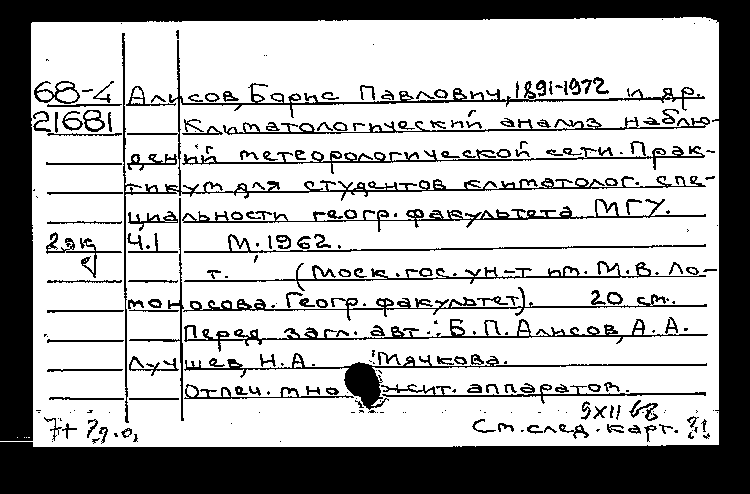 68-4 Алисов, Борис Павлович, 1891-1972 и др.
21681 Климатологический анализ наблю-
дений метеорологической сети. Прак-
тикум для студентов климатолог. спе-
циальности геогр. факультета МГУ.
2 эк Ч.1 М., 1962.
т. (Моск. гос. ун-т им. М. В. Ло-
моносова. Геогр. факультет). 20 см.
Перед загл. авт.: Б. П. Алисов, А. А.
Лучшев, Н. А. Мячкова.
Отпеч. мно жит. аппаратом.
9 XII 68
См. след. карт.